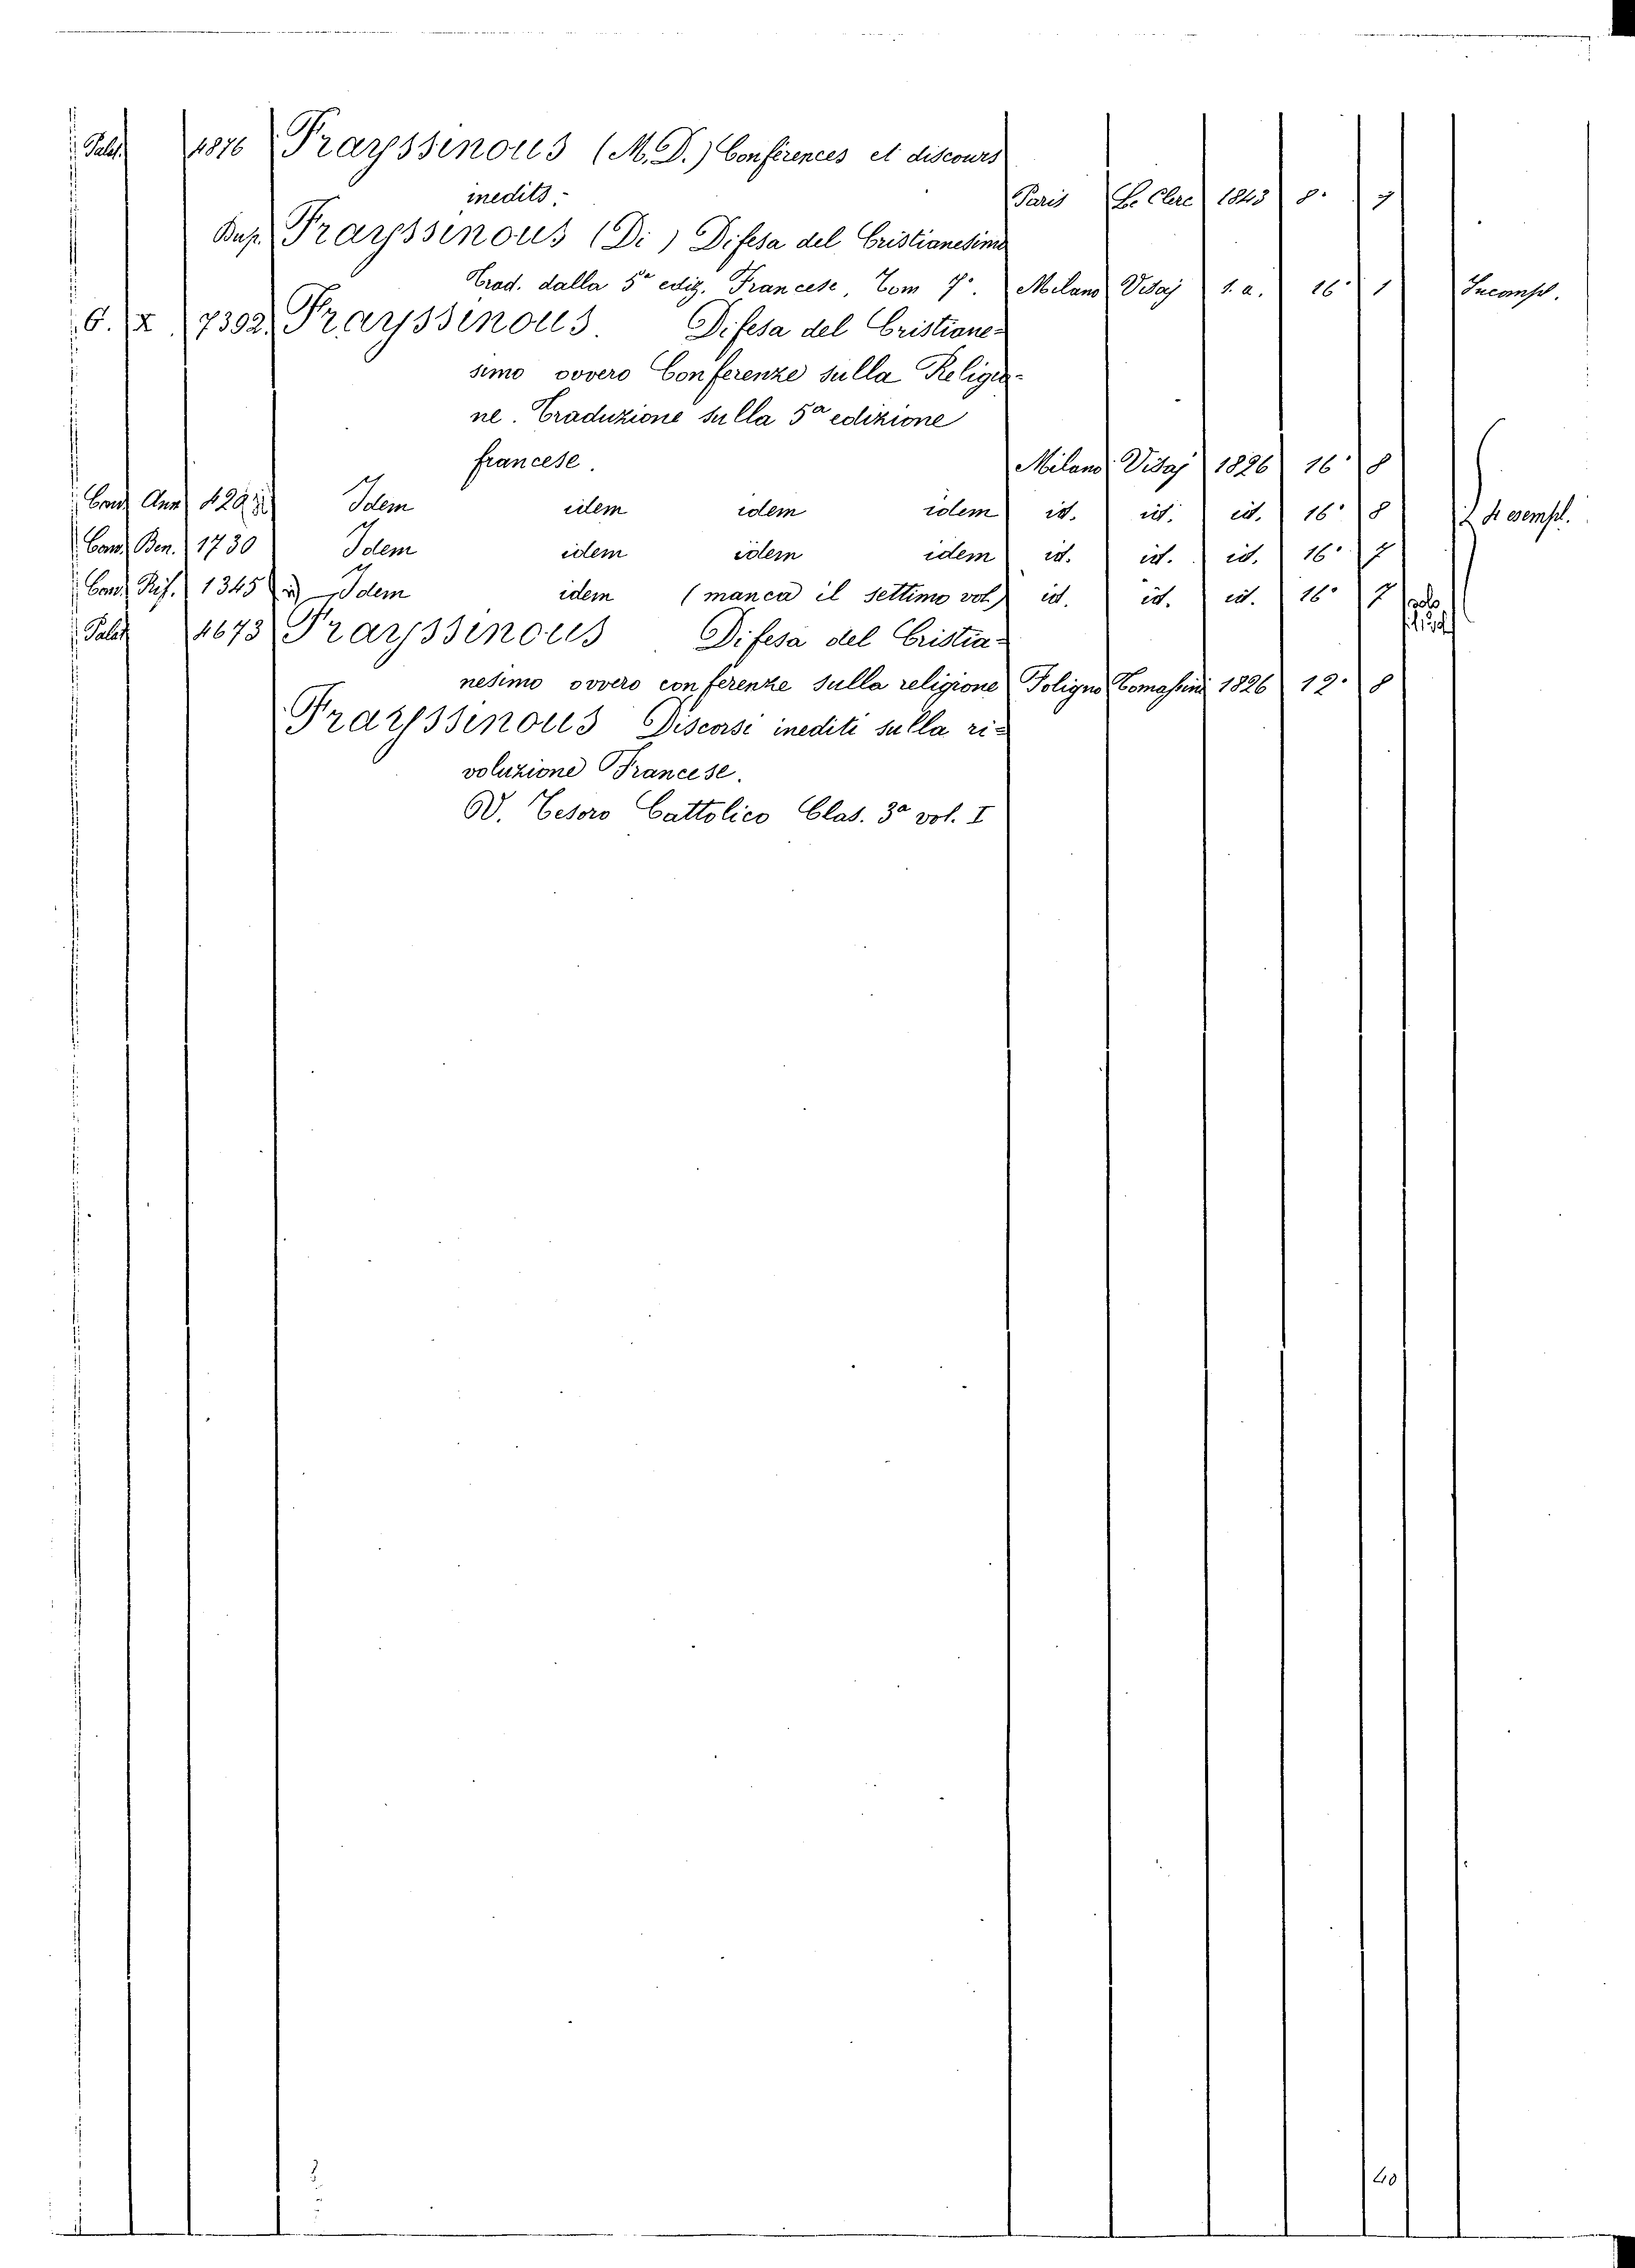 Palat. 4876 Frayssinous (M. D.) Conférences et discours
inedits. Paris Le Clerc 1843 8°
Dup. Frayssinous (Di) Difesa del Cristianesimo
Trad. dalla 5a ediz. Francese, Tom 7°. Milano Visaj s. a. 16° 1 Incompl.
6. X 7392 Frayssinous. Difesa del Cristiane-
simo ovvero Conferenze sulla Religio-
ne. Traduzione sulla 5a edizione
francese. Milano Visaj 1826 16° 8
Con. Ann. Idem idem idem idem id. id. id. 16° 8 4 esempl.
Con. Ben. 1730 Idem idem idem idem id. id. id. 16° 7
Con. Rif. 1345 Idem idem (manca il settimo vol.) id. id. id. 16° 7
Palat. 4673 Frayssinous Difesa del Cristia-
nesimo ovvero conferenze sulla religione Foligno Tomassini 1826 12° 8
Frayssinous Discorsi inediti sulla ri-
voluzione Francese.
V. Tesoro Cattolico Clas. 3a vol. I
40